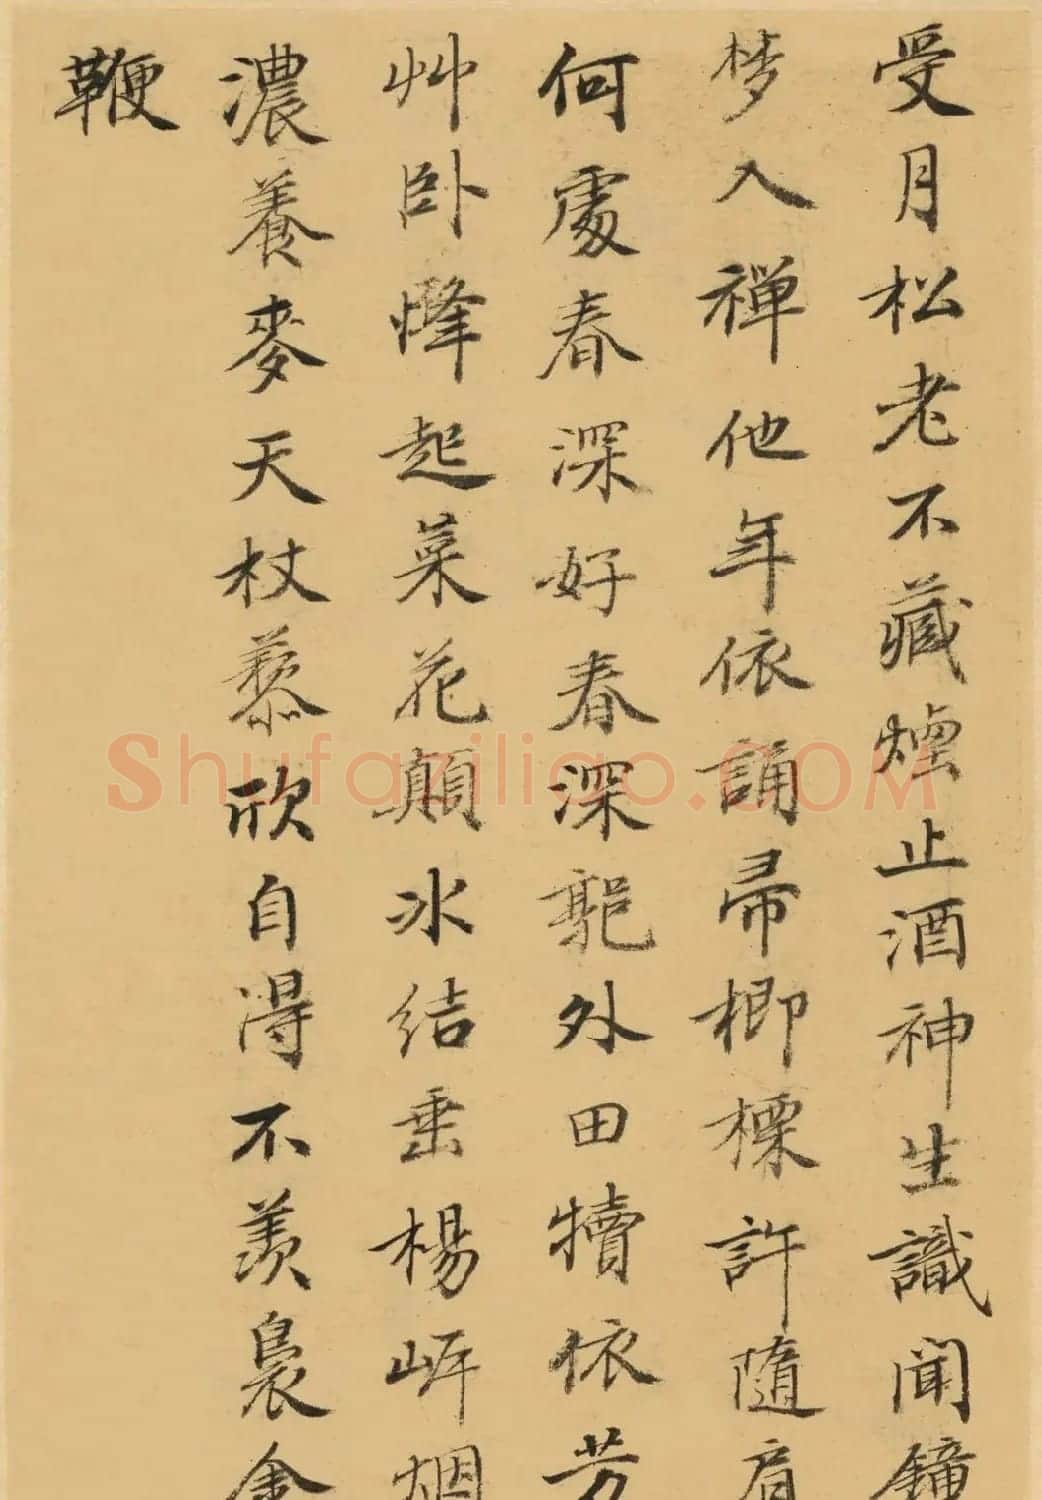 受月松老不藏煙止酒神生識聞鐘
梦入禅他年依誦帚楖𣗳許隨肩
何處春深好春深郭外田犢依芳
艸卧㷭起菜花顛水结垂楊岸烟
濃養麥天杖藜欣自得不羨裊金
鞭
Shufaziliao.COM